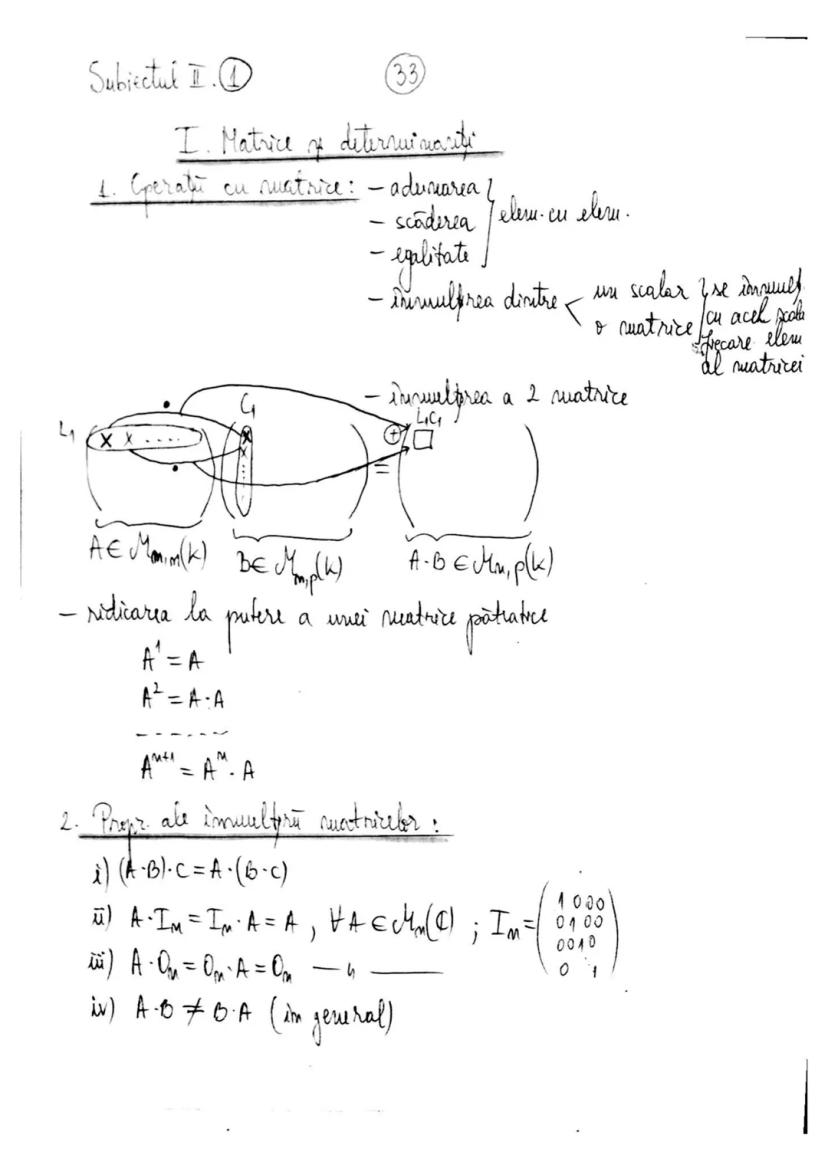 Subiectul II. 1 33
I. Matrice și determinanți
1. Operații cu matrice: – adunarea
– scăderea
– egalitate
elem. cu elem.
– înmulțirea dintre un scalar
o matrice
se înmulț.
cu acel scala
fiecare elem
al matricei
– înmulțirea a 2 matrice
L₁ C₁ L₁C₁
x x ..... x + =
x
A ∈ Mm,n(K) B ∈ Mn,p(K) A·B ∈ Mm,p(K)
– ridicarea la putere a unei matrice pătratice
A¹ = A
A² = A·A
- - - - - - -
Aⁿ⁺¹ = Aⁿ · A
2. Propr. ale înmulțirii matricelor:
i) (A·B)·C = A·(B·C)
ii) A·Iₙ = Iₙ·A = A , ∀A ∈ Mₙ(ℂ) ; Iₙ = (1 0 0 0
0 1 0 0
0 0 1 0
0 1)
iii) A·Oₙ = Oₙ·A = Oₙ — „ ———
iv) A·B ≠ B·A (în general)